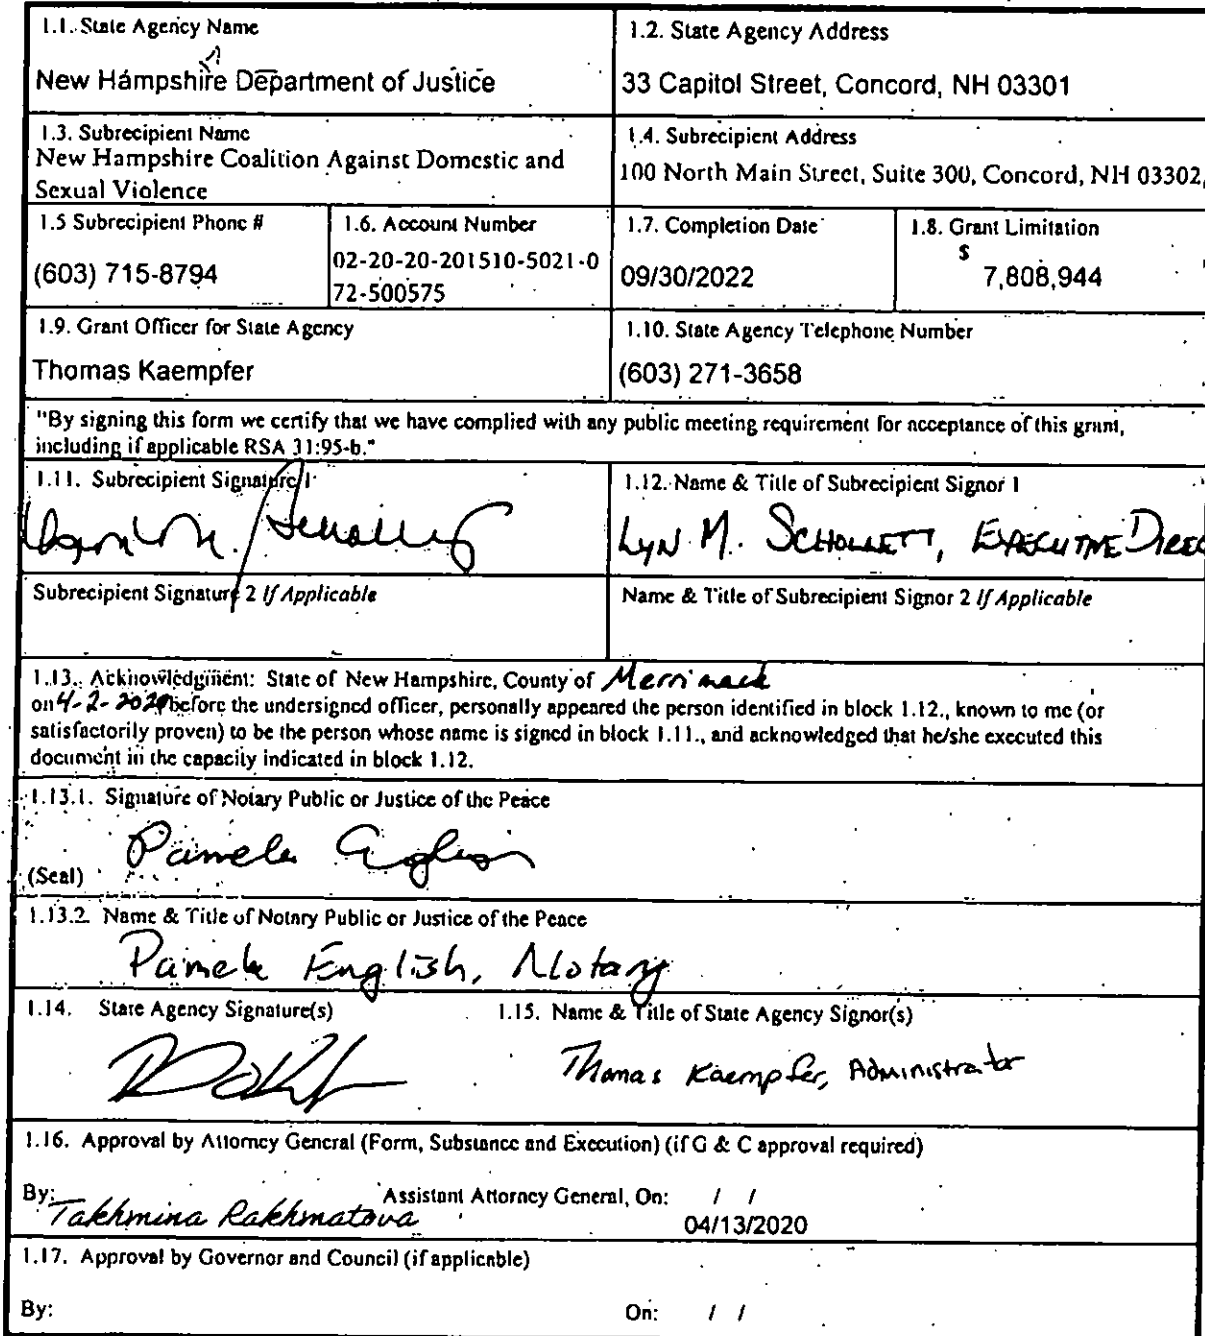 1.1. State Agency Name
New Hampshire Department of Justice
1.2. State Agency Address
33 Capitol Street, Concord, NH 03301
1.3. Subrecipient Name
New Hampshire Coalition Against Domestic and
Sexual Violence
1.4. Subrecipient Address
100 North Main Street, Suite 300, Concord, NH 03302,
1.5 Subrecipient Phone #
(603) 715-8794
1.6. Account Number
02-20-20-201510-5021-0
72-500575
1.7. Completion Date
09/30/2022
1.8. Grant Limitation
$ 7,808,944
1.9. Grant Officer for State Agency
Thomas Kaempfer
1.10. State Agency Telephone Number
(603) 271-3658
"By signing this form we certify that we have complied with any public meeting requirement for acceptance of this grant,
including if applicable RSA 31:95-b."
1.11. Subrecipient Signature 1
1.12. Name & Title of Subrecipient Signor 1
Lyn M. Schollett, Executive Direc
Subrecipient Signature 2 If Applicable
Name & Title of Subrecipient Signor 2 If Applicable
1.13. Acknowledgment: State of New Hampshire, County of Merrimack
on 4-2-2020 before the undersigned officer, personally appeared the person identified in block 1.12., known to me (or
satisfactorily proven) to be the person whose name is signed in block 1.11., and acknowledged that he/she executed this
document in the capacity indicated in block 1.12.
1.13.1. Signature of Notary Public or Justice of the Peace
Pamela English
(Seal)
1.13.2. Name & Title of Notary Public or Justice of the Peace
Pamela English, Notary
1.14. State Agency Signature(s)
1.15. Name & Title of State Agency Signor(s)
Thomas Kaempfer, Administrator
1.16. Approval by Attorney General (Form, Substance and Execution) (if G & C approval required)
By: Takhmina Rakhmatova Assistant Attorney General, On: / /
04/13/2020
1.17. Approval by Governor and Council (if applicable)
By: On: / /